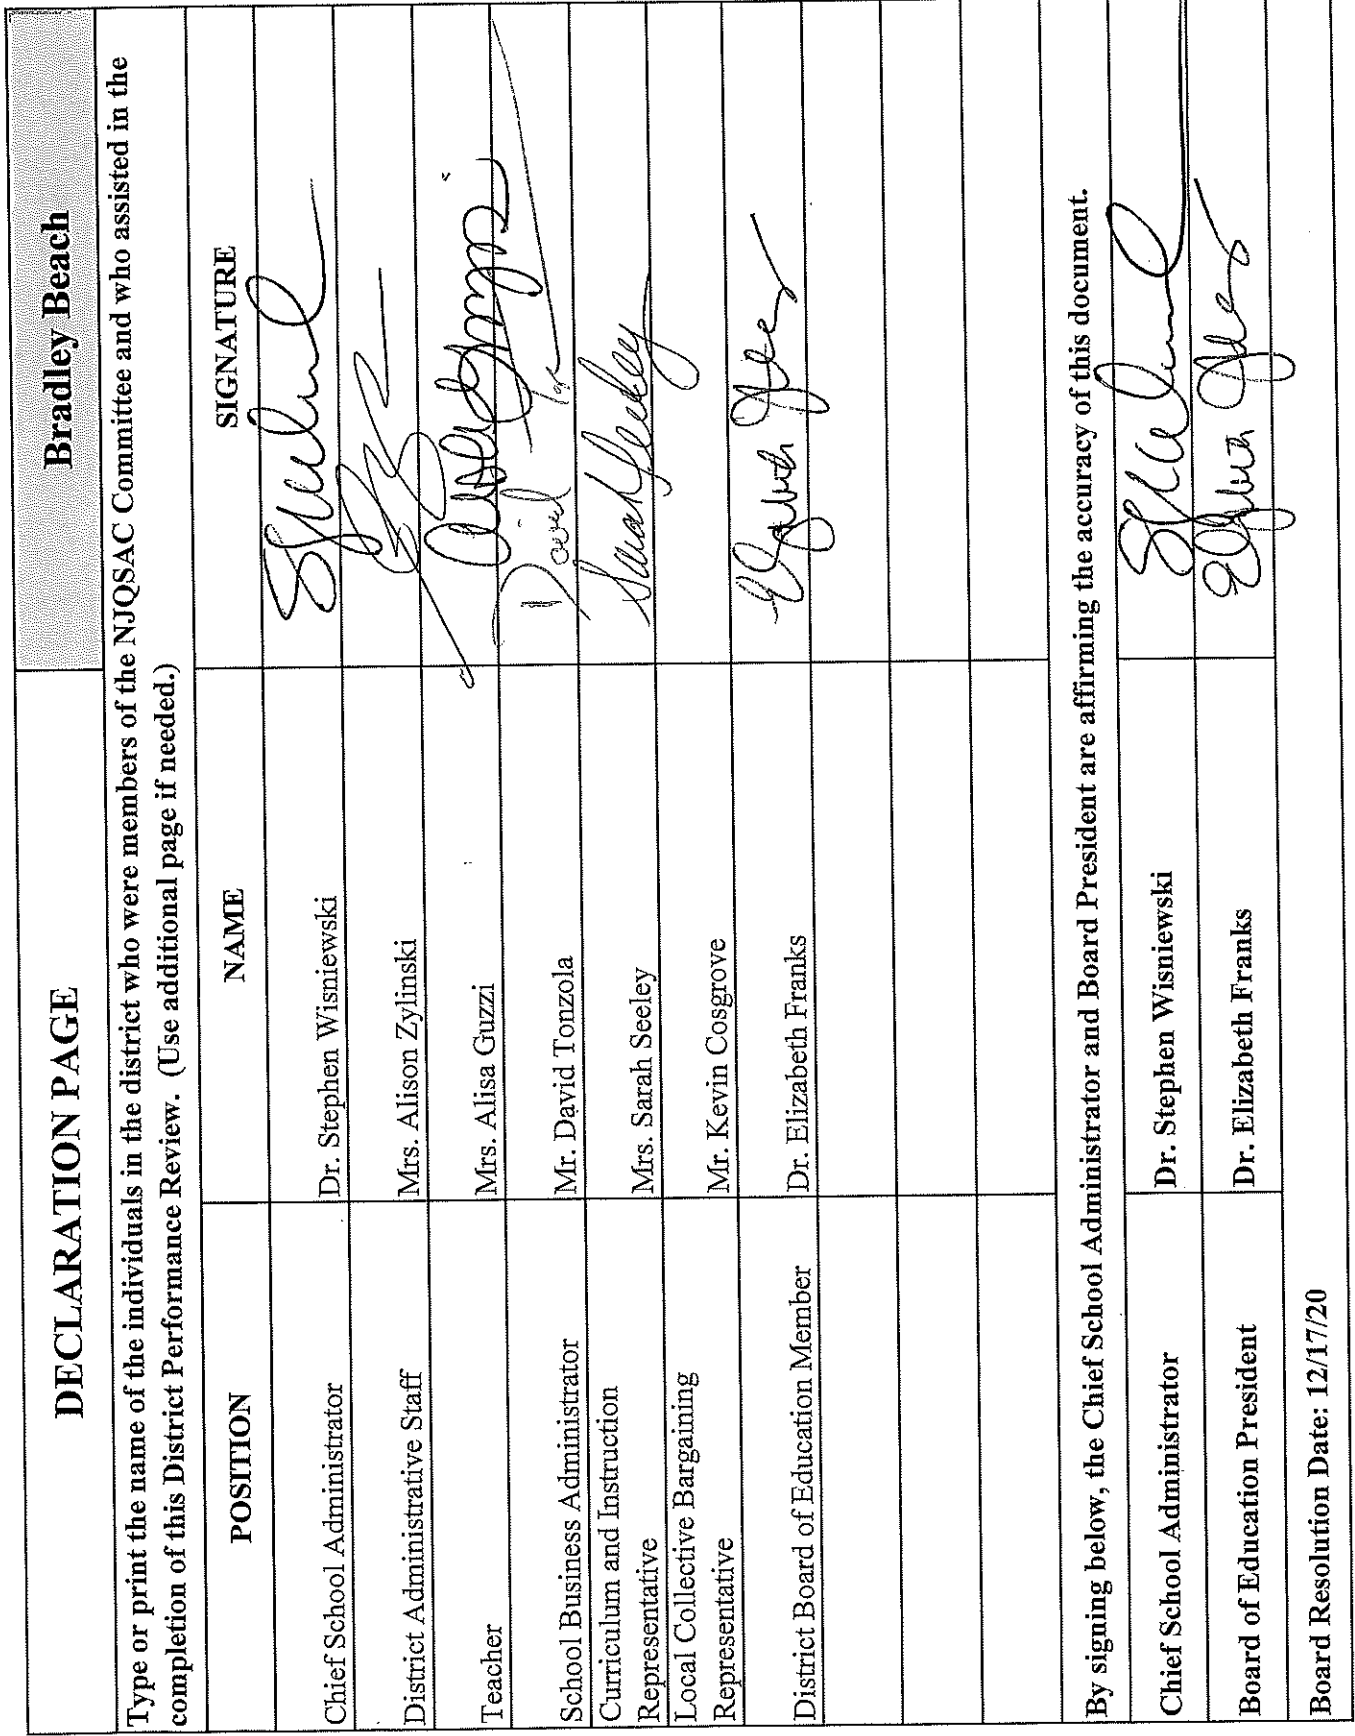 DECLARATION PAGE
Bradley Beach
Type or print the name of the individuals in the district who were members of the NJQSAC Committee and who assisted in the
completion of this District Performance Review. (Use additional page if needed.)
POSITION NAME SIGNATURE
Chief School Administrator Dr. Stephen Wisniewski
District Administrative Staff Mrs. Alison Zylinski
Teacher Mrs. Alisa Guzzi
School Business Administrator Mr. David Tonzola David
Curriculum and Instruction
Representative Mrs. Sarah Seeley Sarah Seeley
Local Collective Bargaining
Representative Mr. Kevin Cosgrove
District Board of Education Member Dr. Elizabeth Franks Elizabeth
By signing below, the Chief School Administrator and Board President are affirming the accuracy of this document.
Chief School Administrator Dr. Stephen Wisniewski
Board of Education President Dr. Elizabeth Franks Elizabeth
Board Resolution Date: 12/17/20